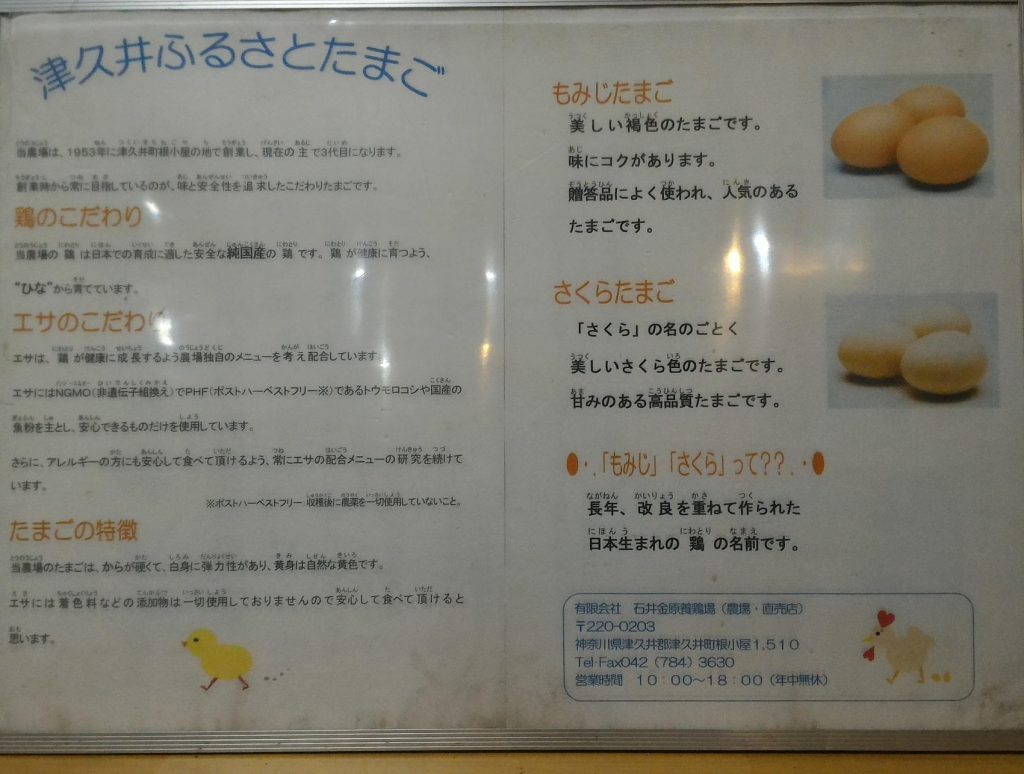 津久井ふるさとたまご
当農場は、1953年に津久井町根小屋の地で創業し、現在の主で3代目になります。
創業時から常に目指しているのが、味と安全性を追求したこだわりたまごです。
鶏のこだわり
当農場の鶏は日本での育成に適した安全な純国産の鶏です。鶏が健康に育つよう、
“ひな”から育てています。
エサのこだわり
エサは、鶏が健康に成長するよう農場独自のメニューを考え配合しています。
エサにはNGMO(非遺伝子組換え)でPHF(ポストハーベストフリー※)であるトウモロコシや国産の
魚粉を主とし、安心できるものだけを使用しています。
さらに、アレルギーの方にも安心して食べて頂けるよう、常にエサの配合メニューの研究を続けて
います。
※ポストハーベストフリー:収穫後に農薬を一切使用していないこと。
たまごの特徴
当農場のたまごは、からが硬くて、白身に弾力性があり、黄身は自然な黄色です。
エサには着色料などの添加物は一切使用しておりませんので安心して食べて頂けると
思います。
もみじたまご
美しい褐色のたまごです。
味にコクがあります。
贈答品によく使われ、人気のある
たまごです。
さくらたまご
「さくら」の名のごとく
美しいさくら色のたまごです。
甘みのある高品質たまごです。
●・.「もみじ」「さくら」って??.・●
長年、改良を重ねて作られた
日本生まれの鶏の名前です。
有限会社 石井金原養鶏場(農場・直売店)
〒220-0203
神奈川県津久井郡津久井町根小屋1,510
Tel・Fax042(784)3630
営業時間 10:00~18:00(年中無休)